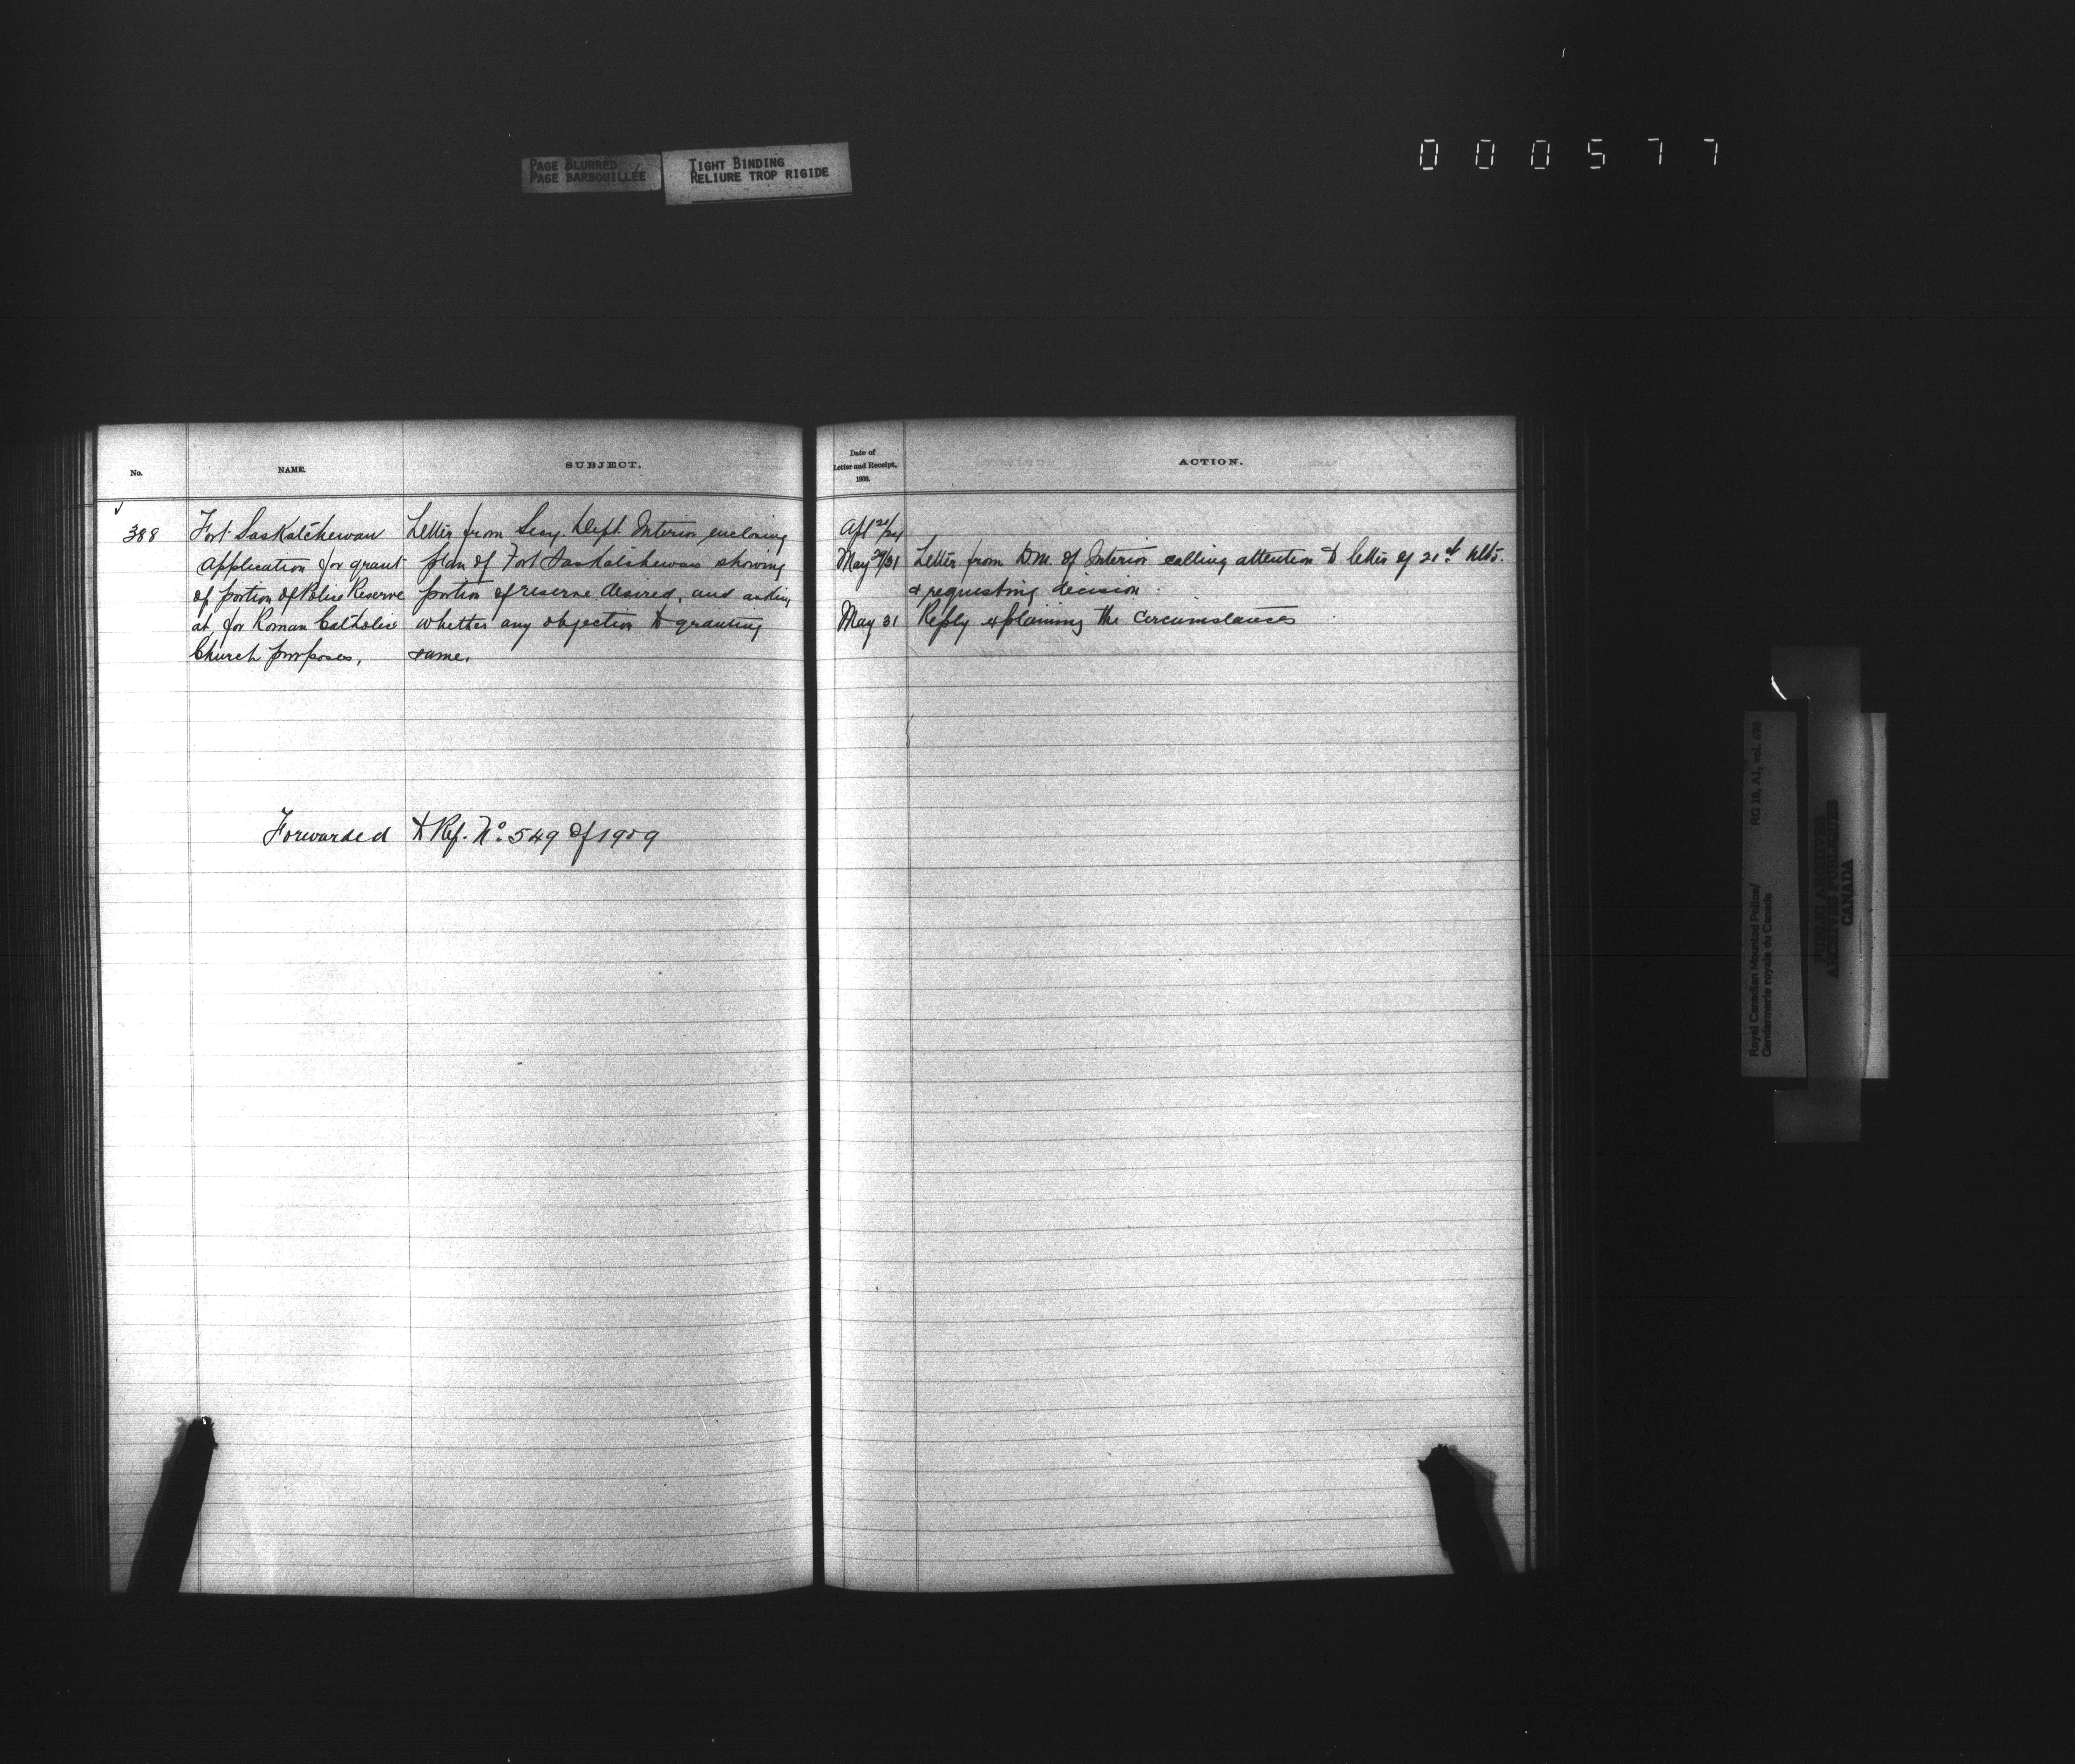 PAGE BLURRED
PAGE BARBOUILLÉE
TIGHT BINDING
RELIURE TROP RIGIDE
000577
No.
NAME.
SUBJECT.
388
Fort Saskatchewan
Application for grant
of portion of Police Reserve
at, for Roman Catholic
Church purposes.
Letter from Secy. Dept. Interior enclosing
plan of Fort Saskatchewan showing
portion of reserve desired, and asking
whether any objection to granting
same.
Forwarded to Ref. No. 549 of 1909
Date of
Letter and Receipt,
190
ACTION.
Apl 21/24
May 29/31 Letter from D.M. of Interior calling attention to letter of 21st ulto.
& requesting decision.
May 31 Reply explaining the circumstances
Royal Canadian Mounted Police/
Gendarmerie royale du Canada
RG 18, A1, vol.
PUBLIC ARCHIVES
ARCHIVES PUBLIQUES
CANADA